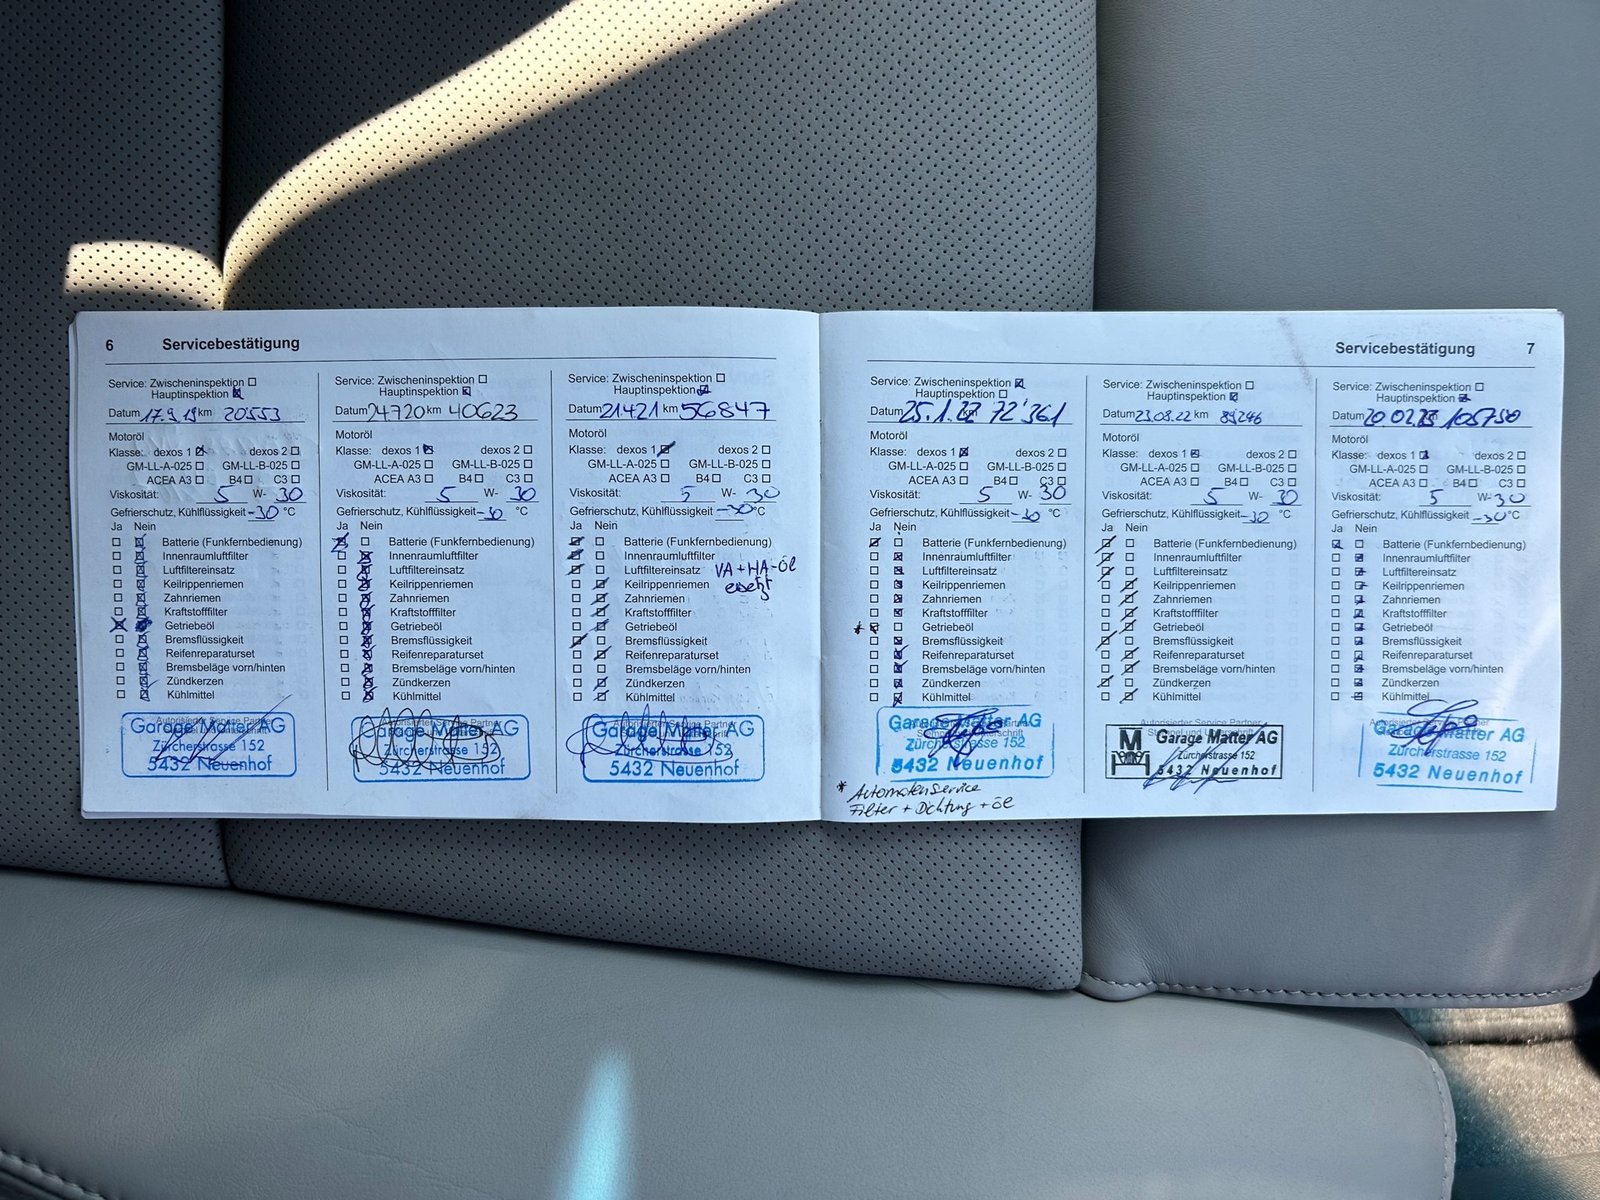 6 Servicebestätigung
Service: Zwischeninspektion
Hauptinspektion
Datum 17.9.19 km 20553
Motoröl
Klasse: dexos 1 dexos 2
GM-LL-A-025 GM-LL-B-025
ACEA A3 B4 C3
Viskosität: 5 W- 30
Gefrierschutz, Kühlflüssigkeit -30 °C
Ja Nein
Batterie (Funkfernbedienung)
Innenraumluftfilter
Luftfiltereinsatz
Keilrippenriemen
Zahnriemen
Kraftstofffilter
Getriebeöl
Bremsflüssigkeit
Reifenreparaturset
Bremsbeläge vorn/hinten
Zündkerzen
Kühlmittel
Autorisierter Service Partner
Garage Matter AG
Zürcherstrasse 152
5432 Neuenhof
Service: Zwischeninspektion
Hauptinspektion
Datum 24720 km 40623
Motoröl
Klasse: dexos 1 dexos 2
GM-LL-A-025 GM-LL-B-025
ACEA A3 B4 C3
Viskosität: 5 W- 30
Gefrierschutz, Kühlflüssigkeit -30 °C
Ja Nein
Batterie (Funkfernbedienung)
Innenraumluftfilter
Luftfiltereinsatz
Keilrippenriemen
Zahnriemen
Kraftstofffilter
Getriebeöl
Bremsflüssigkeit
Reifenreparaturset
Bremsbeläge vorn/hinten
Zündkerzen
Kühlmittel
Autorisierter Service Partner
Garage Matter AG
Zürcherstrasse 152
5432 Neuenhof
Service: Zwischeninspektion
Hauptinspektion
Datum 21421 km 56847
Motoröl
Klasse: dexos 1 dexos 2
GM-LL-A-025 GM-LL-B-025
ACEA A3 B4 C3
Viskosität: 5 W- 30
Gefrierschutz, Kühlflüssigkeit -30 °C
Ja Nein
Batterie (Funkfernbedienung)
Innenraumluftfilter
Luftfiltereinsatz VA+HA-Öl
Keilrippenriemen ersetzt
Zahnriemen
Kraftstofffilter
Getriebeöl
Bremsflüssigkeit
Reifenreparaturset
Bremsbeläge vorn/hinten
Zündkerzen
Kühlmittel
Autorisierter Service Partner
Garage Matter AG
Zürcherstrasse 152
5432 Neuenhof
Servicebestätigung 7
Service: Zwischeninspektion
Hauptinspektion
Datum 25.1.22 km 72'361
Motoröl
Klasse: dexos 1 dexos 2
GM-LL-A-025 GM-LL-B-025
ACEA A3 B4 C3
Viskosität: 5 W- 30
Gefrierschutz, Kühlflüssigkeit -30 °C
Ja Nein
Batterie (Funkfernbedienung)
Innenraumluftfilter
Luftfiltereinsatz
Keilrippenriemen
Zahnriemen
Kraftstofffilter
* Getriebeöl
Bremsflüssigkeit
Reifenreparaturset
Bremsbeläge vorn/hinten
Zündkerzen
Kühlmittel
Garage Matter AG
Zürcherstrasse 152
5432 Neuenhof
* Automatenservice
Filter + Dichtung + Öl
Service: Zwischeninspektion
Hauptinspektion
Datum 23.08.22 km 89246
Motoröl
Klasse: dexos 1 dexos 2
GM-LL-A-025 GM-LL-B-025
ACEA A3 B4 C3
Viskosität: 5 W- 30
Gefrierschutz, Kühlflüssigkeit -30 °C
Ja Nein
Batterie (Funkfernbedienung)
Innenraumluftfilter
Luftfiltereinsatz
Keilrippenriemen
Zahnriemen
Kraftstofffilter
Getriebeöl
Bremsflüssigkeit
Reifenreparaturset
Bremsbeläge vorn/hinten
Zündkerzen
Kühlmittel
Autorisierter Service Partner
Stempel und Unterschrift
M Garage Matter AG
Zürcherstrasse 152
5432 Neuenhof
Service: Zwischeninspektion
Hauptinspektion
Datum 20.02.23 km 105730
Motoröl
Klasse: dexos 1 dexos 2
GM-LL-A-025 GM-LL-B-025
ACEA A3 B4 C3
Viskosität: 5 W- 30
Gefrierschutz, Kühlflüssigkeit -30 °C
Ja Nein
Batterie (Funkfernbedienung)
Innenraumluftfilter
Luftfiltereinsatz
Keilrippenriemen
Zahnriemen
Kraftstofffilter
Getriebeöl
Bremsflüssigkeit
Reifenreparaturset
Bremsbeläge vorn/hinten
Zündkerzen
Kühlmittel
Garage Matter AG
Zürcherstrasse 152
5432 Neuenhof